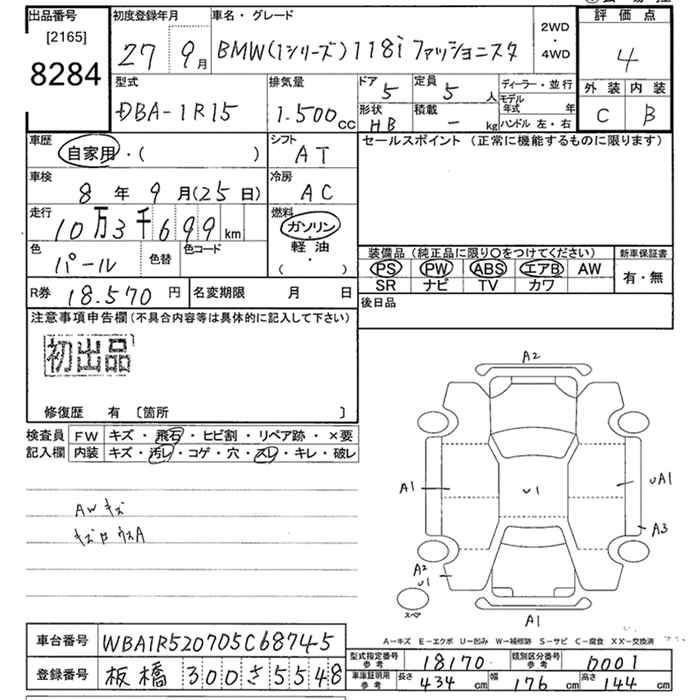 出品番号 初度登録年月 車名・グレード 評価点
[2165]
8284 27 9月 BMW(1シリーズ)118i ファッショニスタ 2WD・4WD 4
外装 内装
C B
型式 排気量 ドア 定員 ディーラー・並行
DBA-1R15 1.500cc 5 5人 モデル年式 年
形状 積載 ハンドル 左・右
HB - kg
車歴 シフト セールスポイント (正常に機能するものに限ります)
自家用・( ) AT
車検 冷房
8年9月(25日) AC
走行 燃料
10万3千699km ガソリン
軽油
( )
色 色替 色コード
パール
装備品 (純正品に限り○をつけてください) 新車保証書
PS PW ABS エアB AW 有・無
SR ナビ TV カワ
R券 18.570円 名変期限 月 日 後日品
注意事項申告欄(不具合内容等は具体的に記入して下さい)
初出品
修復歴 有 [箇所 ]
検査員 FW キズ・飛石・ヒビ割・リペア跡・×要
記入欄 内装 キズ・汚レ・コゲ・穴・スレ・キレ・破レ
AWキズ
A2
A1 U1 UA1
A3
A2
U1
スペア
A1
A-キズ E-エクボ U-凹み W-補修跡 S-サビ C-腐食 XX-交換済
車台番号 WBA1R520705C68745
登録番号 板橋 300 さ 5548
型式指定番号 参考 18170 類別区分番号 参考 0001
車庫証明用 参考 長さ 434cm 幅 176cm 高さ 144cm